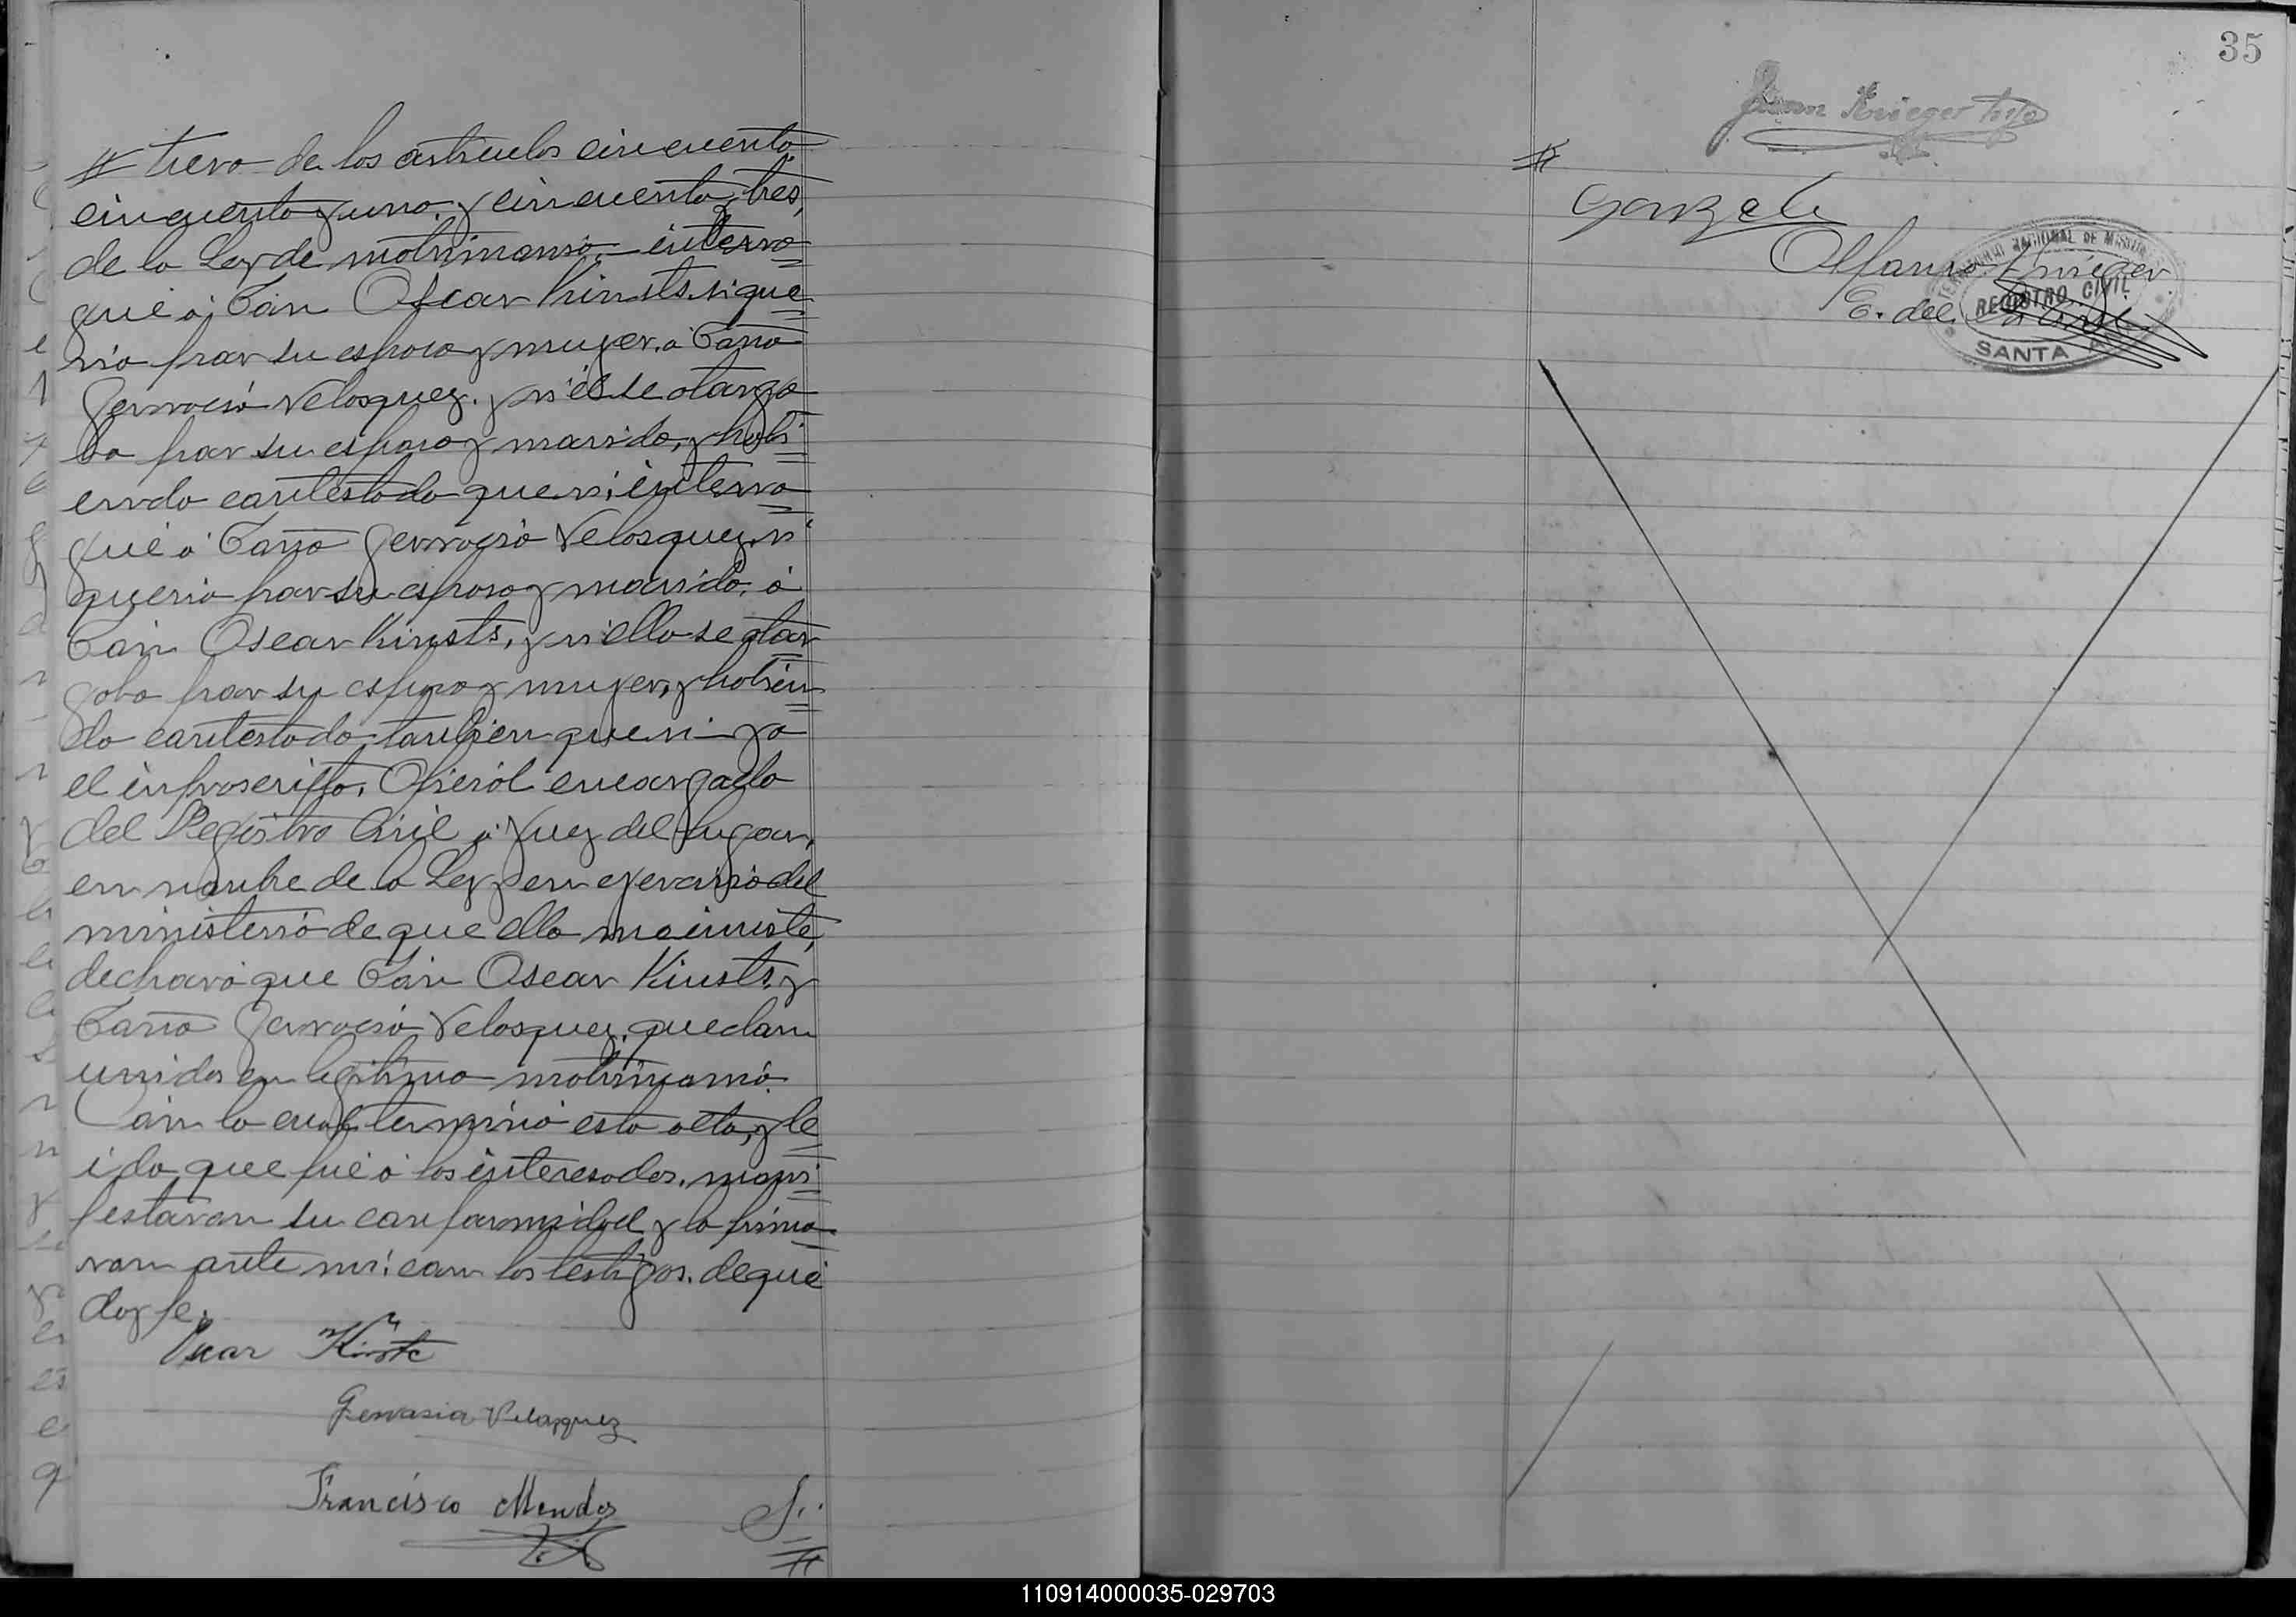 # tura de los articulos cincuenta,
cincuenta y uno y cincuenta y tres,
de la Ley de matrimonio, interro
gué á Don Oscar Kirsts, si que
ria por su esposa y muger, á Doña
Gervacia Velasquez, y si él se otorga
ba por su esposo y marido, y habi
endo contestado que si, interro
gué á Doña Gervacia Velasquez, si
queria por su esposo y marido, á
Don Oscar Kirsts, y si ella se otor
gaba por su esposa y muger, y habien
do contestado tambien que si yo
el infrascripto, Oficial encargado
del Registro Civil y Juez del lugar,
en nombre de la Ley y en ejercicio del
ministerio de que ella me inviste,
declaro que Don Oscar Kirsts, y
Doña Gervacia Velasquez, quedan
unidos en legitimo matrimonio.
Con lo cual terminó esta acta, y le
ida que fué á los interesados, mani
festaron su conformidad y la firma
ron ante mi, con los testigos, de que
doy fe.
Oscar Kirsts
Gervasia Velazquez
Francisco Mendes
S.
#
35
Juan Krieger hijo
#
Gonzalez
Krieger
E. del
TERRITORIO NACIONAL DE MISIONES
REGISTRO CIVIL
SANTA A
110914000035-029703